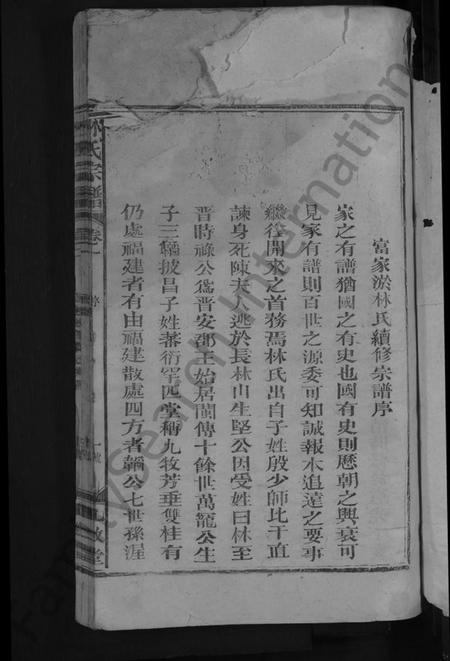 富家淤林氏續修宗譜序
家之有譜猶國之有史也國有史則歷朝之興衰可
見家有譜則百世之源委可知誠報本追遠之要事
繼往開來之首務焉林氏出自子姓殷少師比干直
諫身死陳夫人逃於長林山生堅公因受姓曰林至
晋時祿公為晋安郡王始居閩傳十餘世萬寵公生
子三韜披昌子姓蕃衍罕匹堂稱九牧芳垂雙桂有
仍處福建者有由福建散處四方者韜公七世孫湦
林氏宗譜
卷一
序
一
九牧堂
FamilySearch International